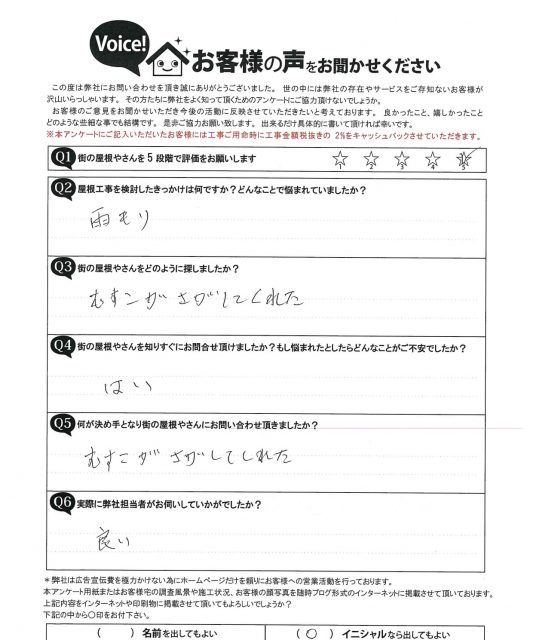 Voice!
お客様の声をお聞かせください
この度は弊社にお問い合わせを頂き誠にありがとうございました。 世の中には弊社の存在やサービスをご存知ないお客様が
沢山いらっしゃいます。 その方たちに弊社をよく知って頂くためのアンケートにご協力頂けないでしょうか。
お客様のご意見をお聞かせいただき今後の活動に反映させていただきたいと考えております。 良かったこと、嬉しかったこと
どのような些細な事でも結構です。 是非ご協力お願い致します。 出来るだけ具体的に書いて頂ければ幸いです。
※本アンケートにご記入いただいたお客様には工事ご用命時に工事金額税抜きの 2%をキャッシュバックさせていただきます。
Q1 街の屋根やさんを5段階で評価をお願いします
1 2 3 4 5
Q2 屋根工事を検討したきっかけは何ですか？どんなことで悩まれていましたか？
雨もり
Q3 街の屋根やさんをどのように探しましたか？
むすこがさがしてくれた
Q4 街の屋根やさんを知りすぐにお問合せ頂けましたか？もし悩まれたとしたらどんなことがご不安でしたか？
はい
Q5 何が決め手となり街の屋根やさんにお問い合わせ頂きましたか？
むすこがさがしてしれた
Q6 実際に弊社担当者がお伺いしていかがでしたか？
良い
＊弊社は広告宣伝費を極力かけない為にホームページだけを頼りにお客様への営業活動を行っております。
本アンケート用紙またはお客様宅の調査風景や施工状況、お客様の顔写真を随時ブログ形式のインターネットに掲載させて頂いております。
上記内容をインターネットや印刷物に掲載させて頂いてもよろしいでしょうか？
下記の中から〇印をお付下さい。
（　）名前を出してもよい
（○）イニシャルなら出してもよい